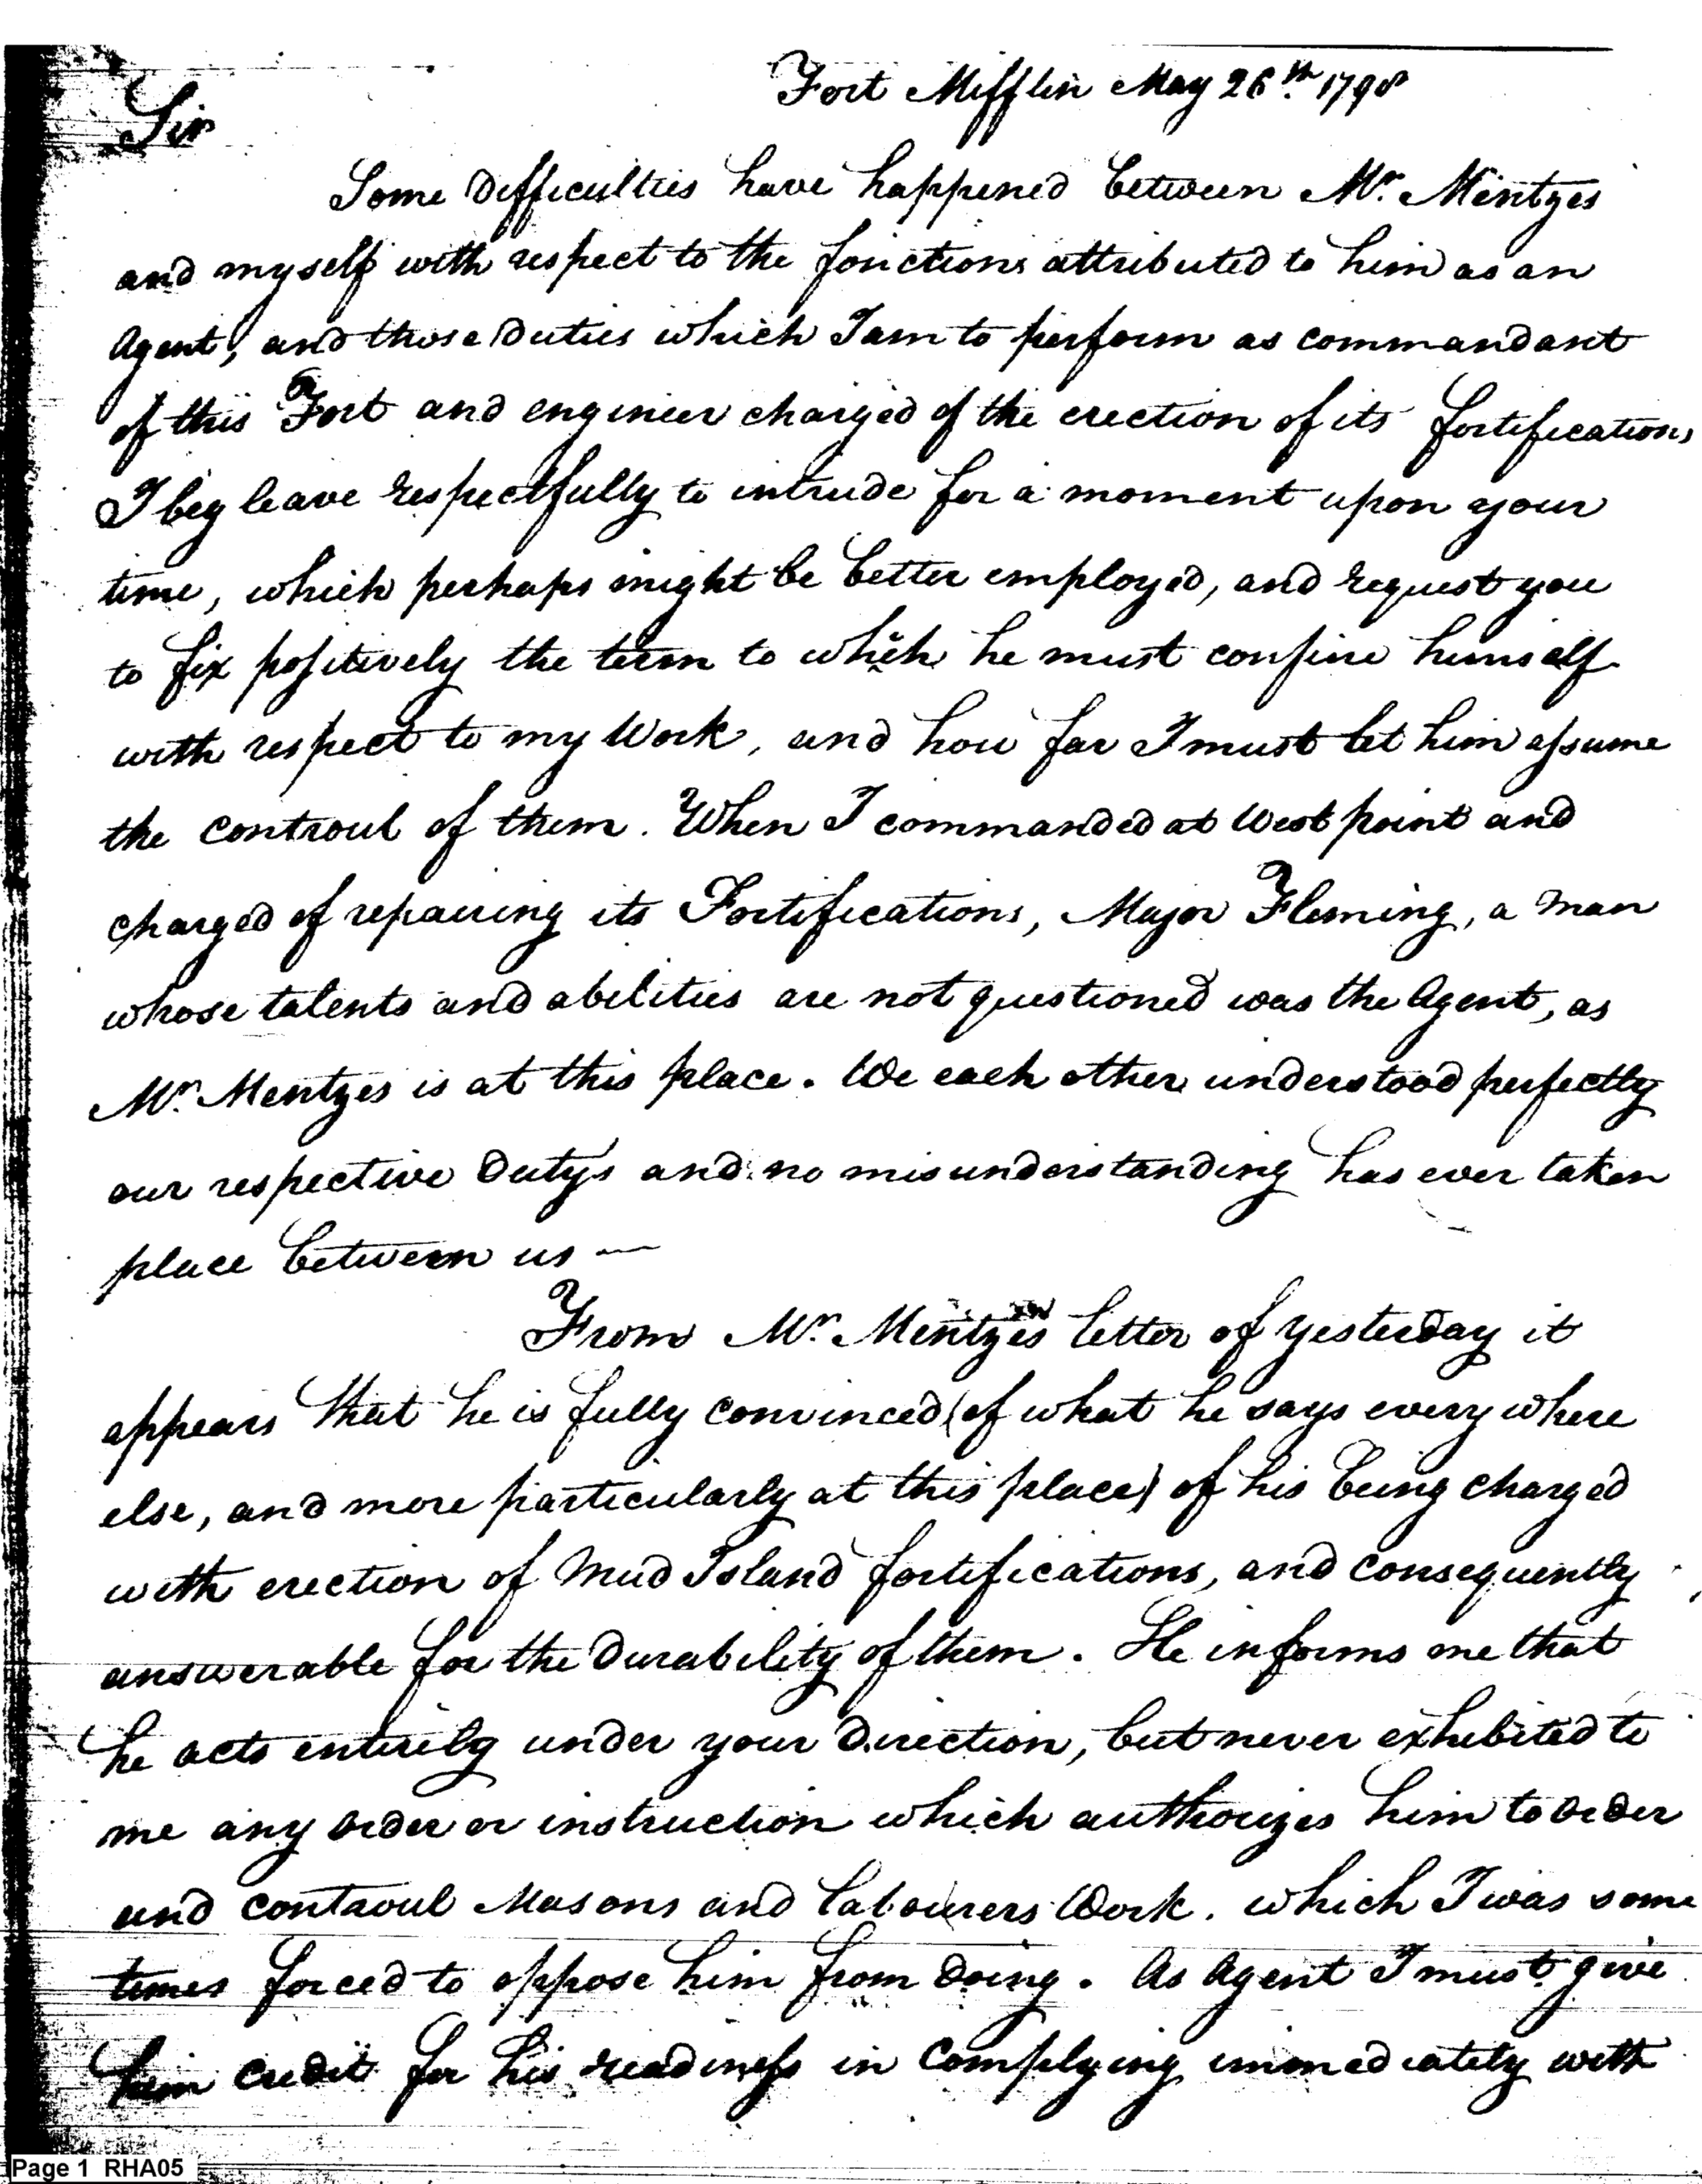 Fort Mifflin May 26th. 1798
Sir
Some difficulties have happened between Mr. Mentzes
and myself with respect to the fonctions attributed to him as an
Agent, and those Duties which I am to perform as commandant
of this Fort and engineer charged of the erection of its fortifications
I beg leave respectfully to intrude for a moment upon your
time, which perhaps might be better employed, and request you
to fix positively the term to which he must confine himself
with respect to my Work, and how far I must let him assume
the controul of them. When I commanded at West point and
charged of repairing its Fortifications, Major Fleming, a man
whose talents and abilities are not questioned was the Agent, as
Mr. Mentzes is at this place. We each other understood perfectly
our respective Dutys and no misunderstanding has ever taken
place between us —
From Mr. Mentzes letter of yesterday it
appears that he is fully convinced (of what he says every where
else, and more particularly at this place) of his being charged
with erection of Mud Island fortifications, and consequently
answerable for the Durability of them. He informs me that
he acts entirely under your Direction, but never exhibited to
me any order or instruction which authorizes him to order
and controul Masons and Labourers Work. which I was some
times forced to oppose him from Doing. As Agent I must give
him credit for his readiness in complying immediately with
Page 1 RHA05